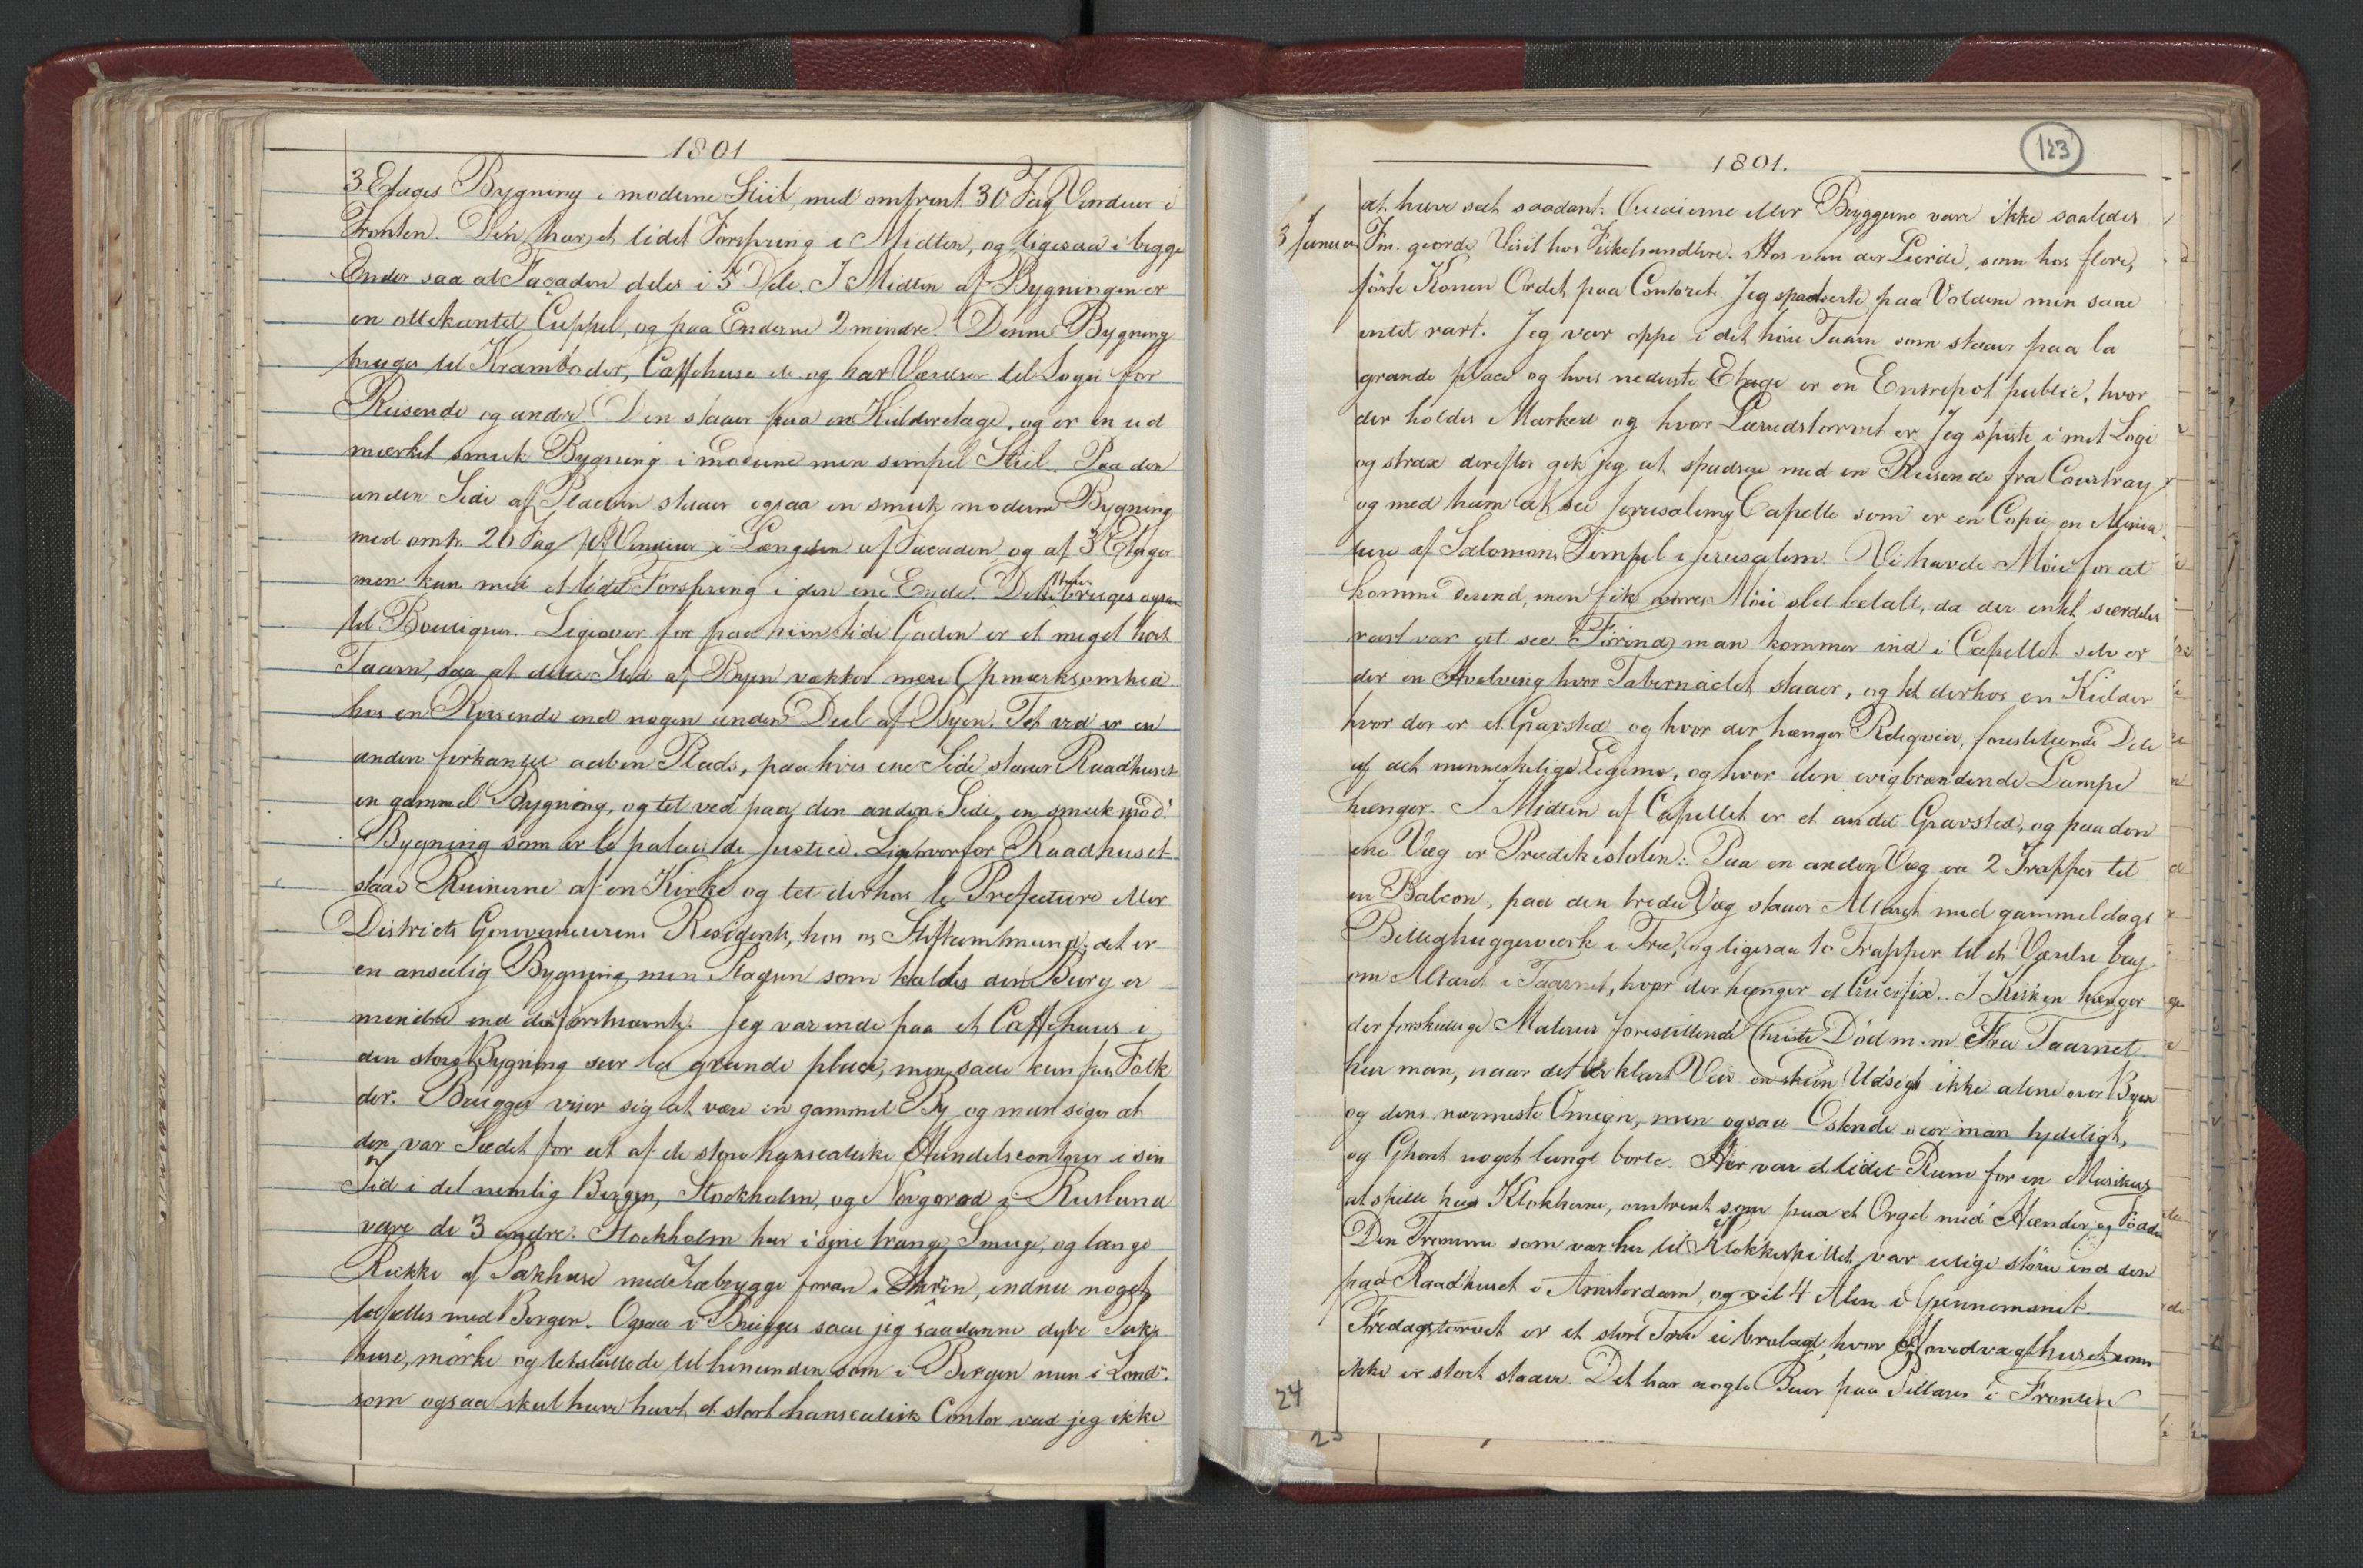 1801
3 Etages Bygning i moderne Stiil, med omtrent 30 Fag Vinduer i
Fronten. Den har et lidet Forspring i Midten, og ligesaa i begge
Ender saa at Façaden deles i 5 Dele. I Midten af Bygningen er
en ottekantet Cuppel, og paa Enderne 2 mindre. Denne Bygning
bruges til Kramboder, Caffehuse etc og har Værelser til Logie for
Reisende og andre. Den staaer paa en Kielderetage, og er en ud
mærket smuk Bygning i moderne men simpel Stiil. Paa den
anden Side af Pladsen staaer ogsaa en smuk moderne Bygning
med omtr. 20 Fag Vinduer i Længden af Facaden og af 3 Etager
men kun med et lidet Forspring i den ene Ende. Dette bruges ogsaa
til Boutiquer. Ligeover for paa hiin Side Gaden er et meget høit
Taarn, saa at dette Sted af Byen vækker mere Opmærksomhed
hos en Reisende end nogen anden Deel af Byen. Tet ved er en
anden firkantet aaben Plads, paa hvis ene Side staaer Raadhuset
en gammel Bygning, og tet ved paa den anden Side, en smuk mod:
Bygning som er le palais de justice. Ligeoverfor Raadhuset
staae Ruinerne af en Kirke og tet derhos le Prefecture eller
Districts Gouverneurens Residents, hos os Stiftamtmand; det er
en anseelig Bygning, men Pladsen som kaldes den Burg er
mindre end den førstnævnte. Jeg var inde paa et Caffehuus i
den store Bygning sur la grande place, men saae kun faa Folk
der. Brügges viser sig at være en gammel By og man siger at
den var Sædet for et af de store hanseatiske Handelscontoirer i sin
Tid i det nemlig Bergen, Stockholm, og Novgorod i Rusland
vare de 3 andre. Stockholm har i sine trange Smuge, og lange
Række af Pakhuse med Søebrygge foran, endnu noget
tilfælles med Bergen. Ogsaa i Brügges saae jeg saadanne dybe Pak
huse, mørke og tetsluttede til hinanden som i Bergen men i Lond:
som ogsaa skal have havt et stort hanseatisk Contor veed jeg ikke
123
1801.
at have seet saadant. Qvaierne eller Bryggerne vare ikke saaledes
3 Januar Fm. giorde Visit hos Fiskehandlere. Hos van der Lieride, som hos flere,
førte Konen Ordet paa Contoret. Jeg spadserte paa Voldene men saae
intet rart. Jeg var oppe i det høie Taarn som staaer paa la
grande place og hvis nederste Etage er en Entrepot public, hvor
der holdes Marked og hvor Lærredstorvet er. Jeg spiste i mit Logi
og strax derefter gik jeg ud spadsere med en Reisende fra Courtray
og med ham at see Jerusalems Capelle som er en Copie en Minia
ture af Salomons Tempel i Jerusalem. Vi havde Møie for at
komme derind, men fik vores Møie slet betalt, da der intet særdeles
rart var at see. Førend man kommer ind i Capellet selv er
der en Hvelving hvor Tabernaclet staaer, og tet derhos en Kielder
hvor der er et Gravsted og hvor der hænger Reliqvier, forestillende Dele
af det menneskelige Legeme, og hvor den evigbrændende Lampe
hænger. I Midten af Capellet er et andet Gravsted, og paa den
ene Væg er Prædikestolen. Paa en anden Væg ere 2 Trapper til
en Balcon, paa den tredie Væg staaer Altaret med gammeldags
Billedhuggerværk i Træ, og ligesaa to Trapper til et Værelse bag
om Altaret i Taarnet, hvor der hænger et Crucifix. I Kirken hænger
der forskiellige Malerier forestillende Christi Død m. m. Fra Taarnet
har man, naar det er klart Veir en skiøn Udsigt ikke alene over Byen
og dens nærmeste Omegn, men ogsaa Ostende seer man tydeligt,
og Ghent noget langt borte. Her var et lidet Rum for en Musikus
at spille paa Klokkerne, omtrent som paa et Orgel med Hænder og Fødder
Den Tromme som var her til Klokkespillet, var ulige større end den
paa Raadhuset i Amsterdam, og vel 4 Alen i Giennemsnit.
Fredagstorvet er et stort Torv ei brolagt, hvor Hovedvagthuset som
ikke er stort staaer. Det har nogle Buer paa Pillarer i Fronten
24
25